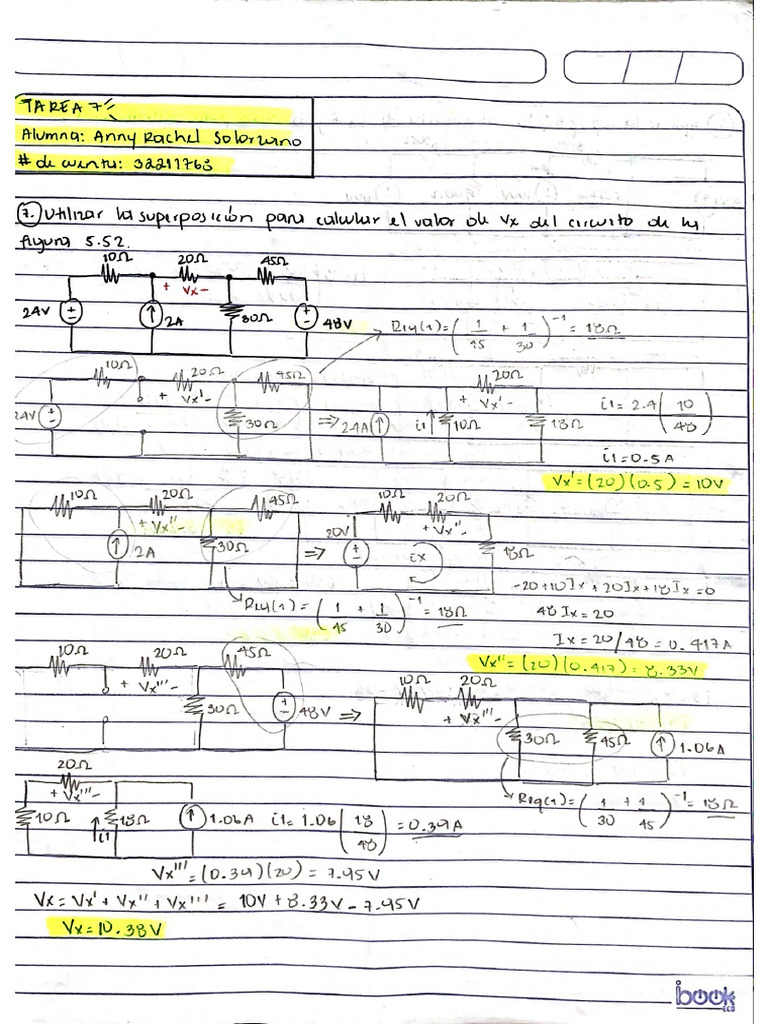 TAREA 7
Alumna: Anny Rachel Solorzano
# de cuenta: 32211768
7. Utilizar la superposición para calcular el valor de Vx del circuito de la
figura 5.52.
10Ω 20Ω 45Ω
+ Vx -
24V 2A 30Ω 48V
Req(1) = (1/45 + 1/30)^-1 = 18Ω
10Ω 20Ω 45Ω 20Ω
+ Vx' - + Vx' -
24V 30Ω ⇒ 2.4A i1 10Ω 18Ω
i1 = 2.4 (10/48)
i1 = 0.5A
Vx' = (20)(0.5) = 10V
10Ω 20Ω 45Ω 10Ω 20Ω
+ Vx'' - + Vx'' -
2A 30Ω ⇒ 20V ix 18Ω
Req(1) = (1/45 + 1/30)^-1 = 18Ω
-20+10Ix+20Ix+18Ix=0
48 Ix = 20
Ix = 20/48 = 0.417A
Vx'' = (20)(0.417) = 8.33V
10Ω 20Ω 45Ω 10Ω 20Ω
+ Vx''' - + Vx''' -
30Ω 48V ⇒ 30Ω 45Ω 1.06A
Req(1) = (1/30 + 1/45)^-1 = 18Ω
20Ω
+ Vx''' -
10Ω i1 18Ω 1.06A i1 = 1.06 (18/48) = 0.39A
Vx''' = (0.39)(20) = 7.95V
Vx = Vx' + Vx'' + Vx''' = 10V + 8.33V - 7.95V
Vx = 10.38V
ibook
ECO